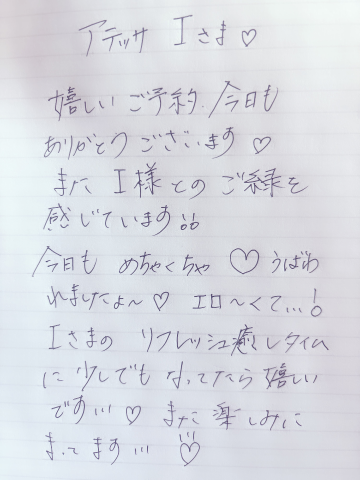 アテッサ Iさま♡
嬉しい ご予約、今日も
ありがとう ございます♡
また I様 との ご縁を
感じています!!
今日も めちゃくちゃ ♡ うばわ
れましたよ〜♡ エロ〜くて…!
Iさまの リフレッシュ癒しタイム
に 少しでも なってたら 嬉しい
です…♡ また 楽しみに
まってます…♡